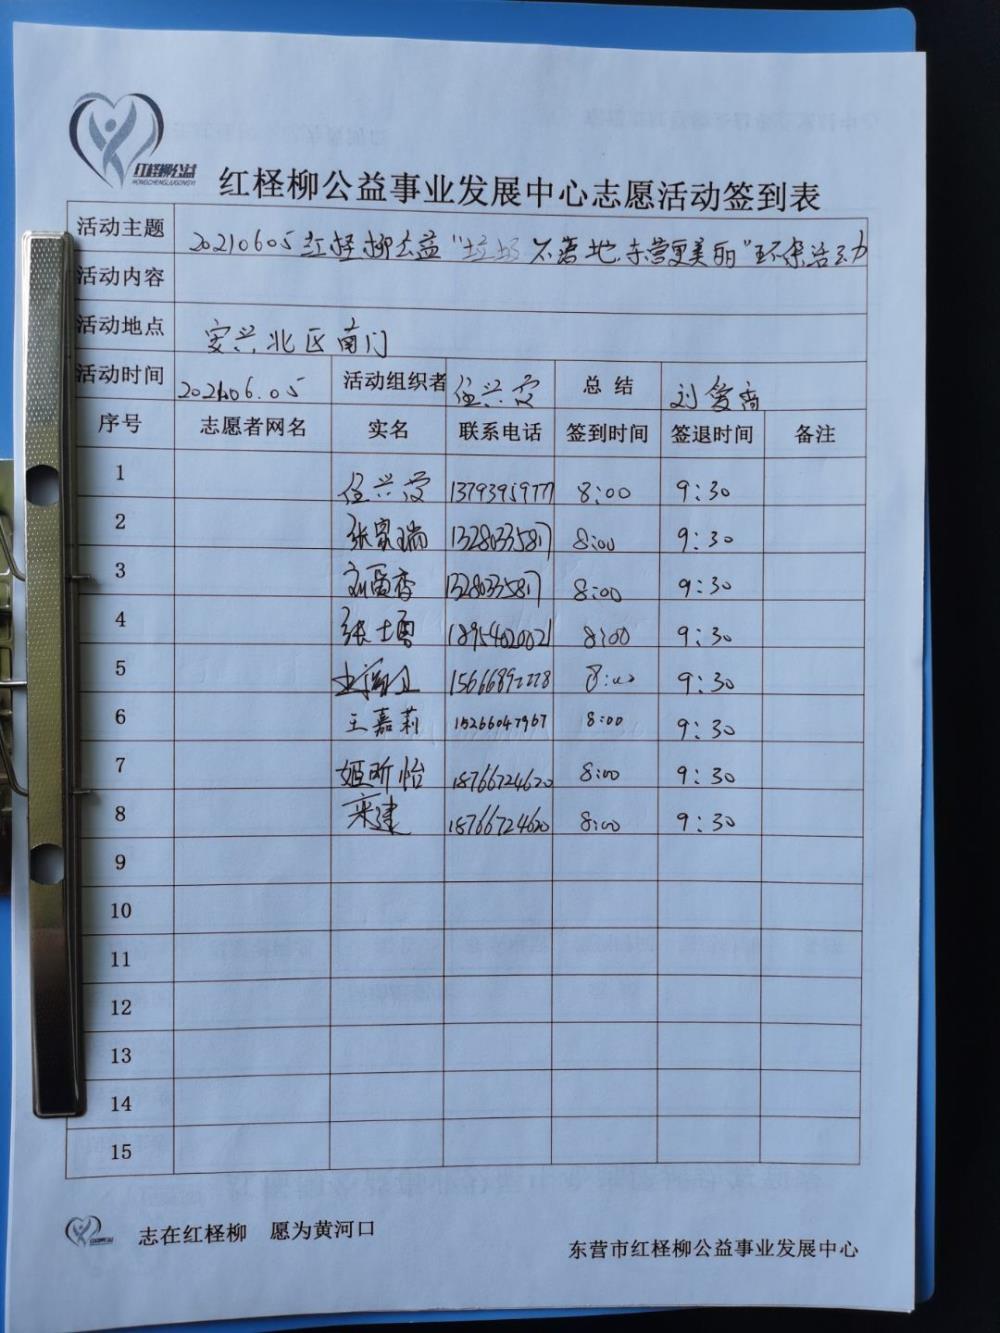 红柽柳公益
HONGCHENGLIUGONGYI
红柽柳公益事业发展中心志愿活动签到表
活动主题 20210605红柽柳公益"垃圾不落地东营更美丽"环保活动
活动内容
活动地点 安兴北区南门
活动时间 2021.06.05 活动组织者 任兴 总结 刘爱
序号 志愿者网名 实名 联系电话 签到时间 签退时间 备注
1 任兴 13793959777 8:00 9:30
2 张家瑞 13280335817 8:00 9:30
3 刘 13280335817 8:00 9:30
4 张 18954020021 8:00 9:30
5 8:00 9:30
6 王嘉莉 15266047967 8:00 9:30
7 姬昕怡 18766724620 8:00 9:30
8 建 18766724620 8:00 9:30
9
10
11
12
13
14
15
志在红柽柳 愿为黄河口
东营市红柽柳公益事业发展中心